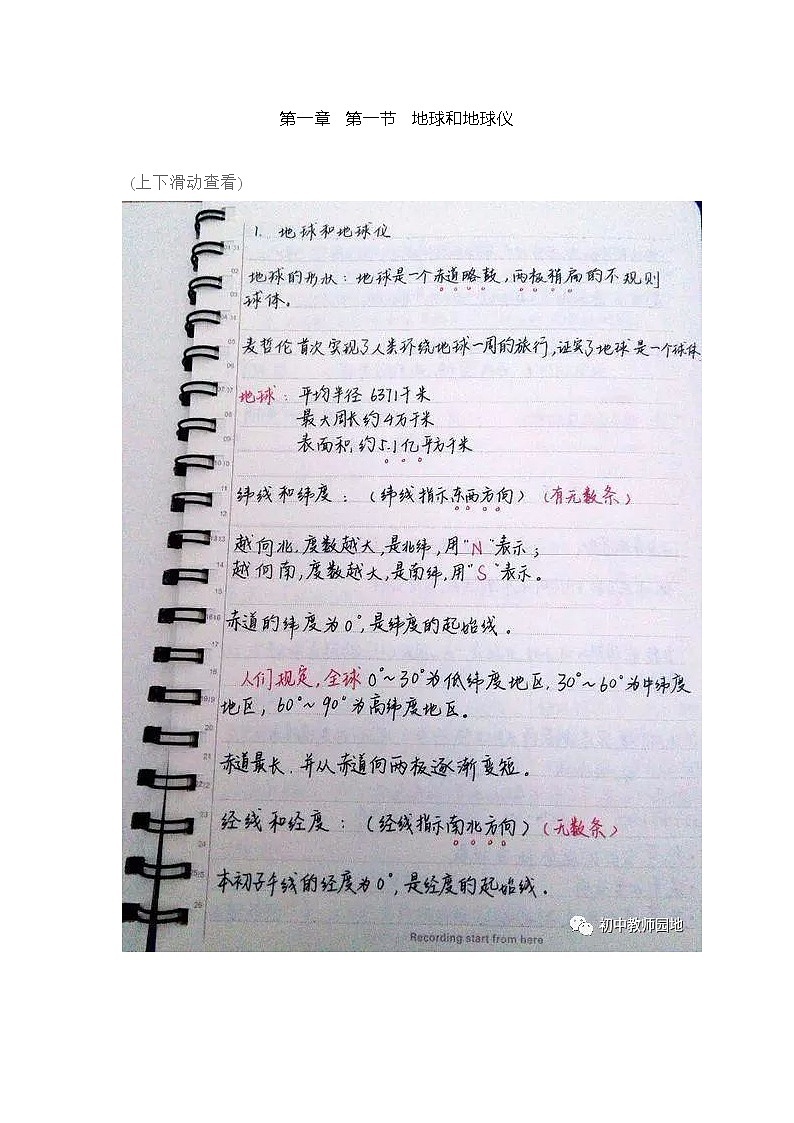 第一章 第一节 地球和地球仪
(上下滑动查看)
1. 地球和地球仪
地球的形状：地球是一个赤道略鼓，两极稍扁的不规则
球体。
麦哲伦首次实现了人类环绕地球一周的旅行，证实了地球是一个球体
地球：平均半径 6371千米
最大周长约4万千米
表面积，约5.1亿平方千米
纬线和纬度：（纬线指示东西方向）（有无数条）
越向北，度数越大，是北纬，用"N"表示；
越向南，度数越大，是南纬，用"S"表示。
赤道的纬度为0°，是纬度的起始线。
人们规定，全球0°~30°为低纬度地区，30°~60°为中纬度
地区，60°~90°为高纬度地区。
赤道最长，并从赤道向两极逐渐变短。
经线和经度：（经线指示南北方向）（无数条）
本初子午线的经度为0°，是经度的起始线。
初中教师园地
Recording start from here